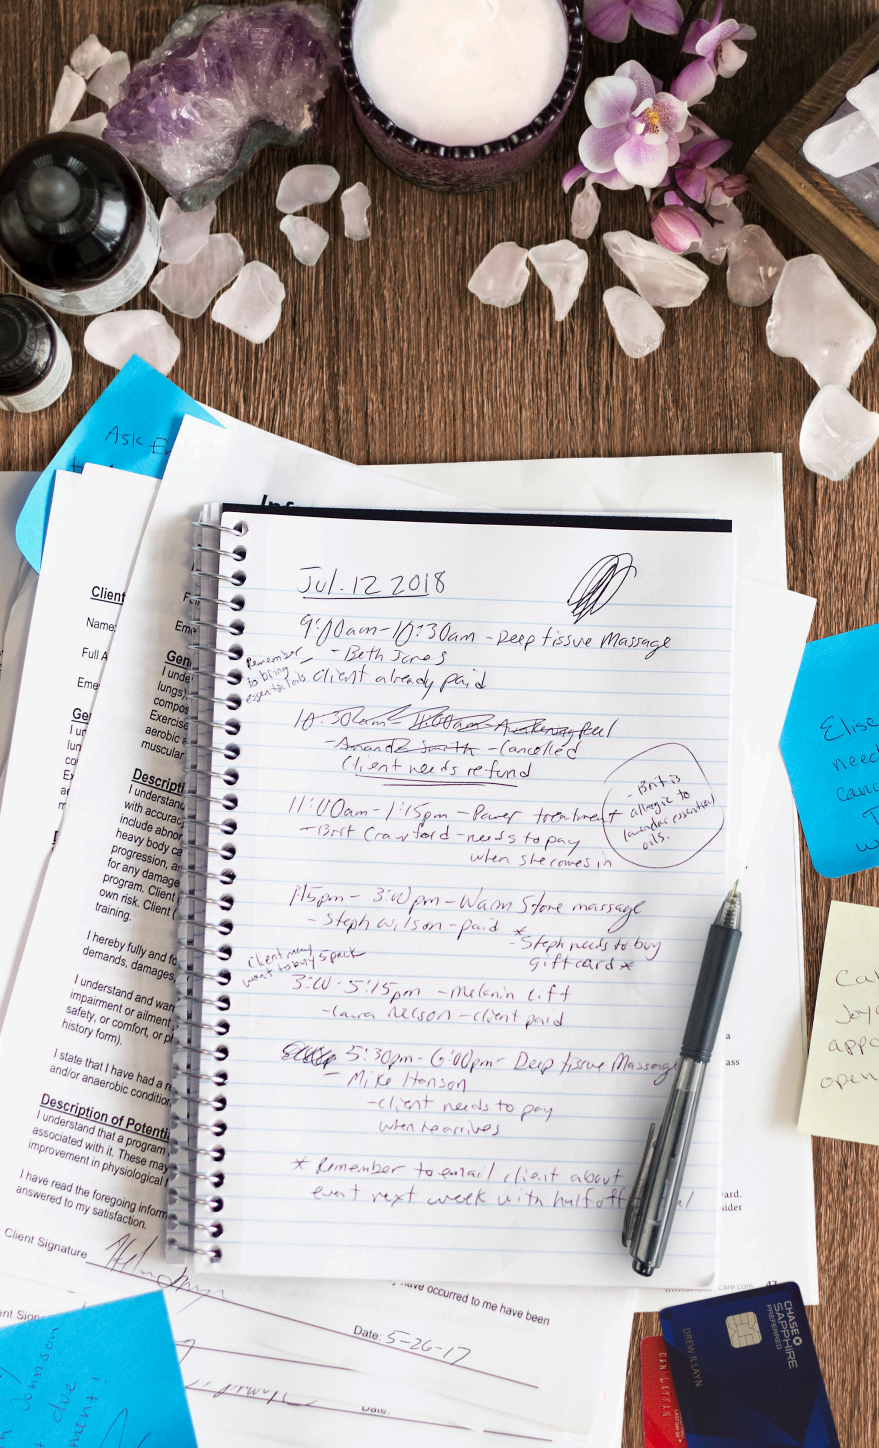 Ask
Inf
Client
Name:
Full A
Eme
Ge
I un
lun
co
Ex
ae
m
Fu
Eme
Gene
I unde
lungs)
compos
Exercise
aerobic
muscular
Descripti
I understand
with accurac
include abnor
heavy body ca
progression, an
for any damage
program. Client
own risk. Client (
training.
I hereby fully and fo
demands, damages,
I understand and war
impairment or ailment
safety, or comfort, or pl
history form).
I state that I have had a r
and/or anaerobic condition
Description of Potenti
I understand that a program
associated with it. These may
improvement in physiological f
I have read the foregoing inform
answered to my satisfaction.
Client Signature
Jul. 12 2018
9:00am-10:30am - Deep tissue Massage
- Beth Jones
Remember
to bring
essential oils
client already paid
10:30am - 11:00am - Awakening peel
- Amanda Smith - Cancelled
Client needs refund
11:00am-1:15pm - Power treatment
- Brit Crawford - needs to pay
when she comes in
- Brit is
allergic to
lavender essential
oils.
1:15pm - 3:00pm - Warm Stone massage
- Steph Wilson - paid
* Steph needs to buy
gift card *
Client may
want to buy 5 pack
3:00-5:15pm - Melanin Lift
- Laura Nelson - client paid
5:30pm - 6:00pm - Deep tissue Massage
- Mike Hanson
- client needs to pay
when he arrives
* Remember to email client about
event next week with half off
Elise
need
canc
Joy
appo
open
ass
ard.
sider
care.com 47
have occurred to me have been
Date: 5-26-17
Date:
ent Sign
Johnson
due
ment!
CHASE
SAPPHIRE
PREFERRED
DREW R LAYN